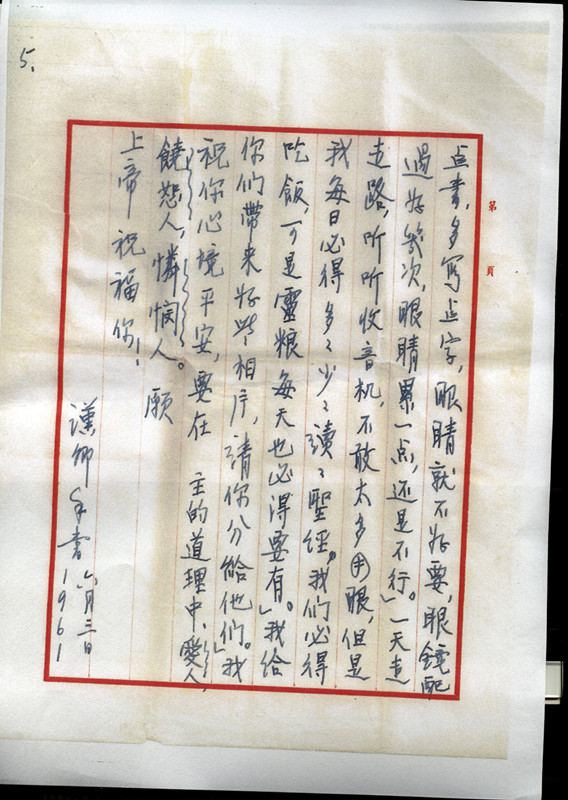 5.
第 頁
点書,多写点字,眼睛就不好要,眼鏡配
過好幾次,眼睛累一点,还是不行。」一天走
走路,听听收音机,不敢太多用眼,但是
我每日必得多多少少讀讀聖經,我们必得
吃飯,可是靈粮每天也必得要有。」我给
你们帶来好些相片,請你分給他们。」我
祝你心境平安,要在 主的道理中、愛人,
饒恕人,憐悯人。願
上帝祝福你!
漢卿手書 六月三日
1961